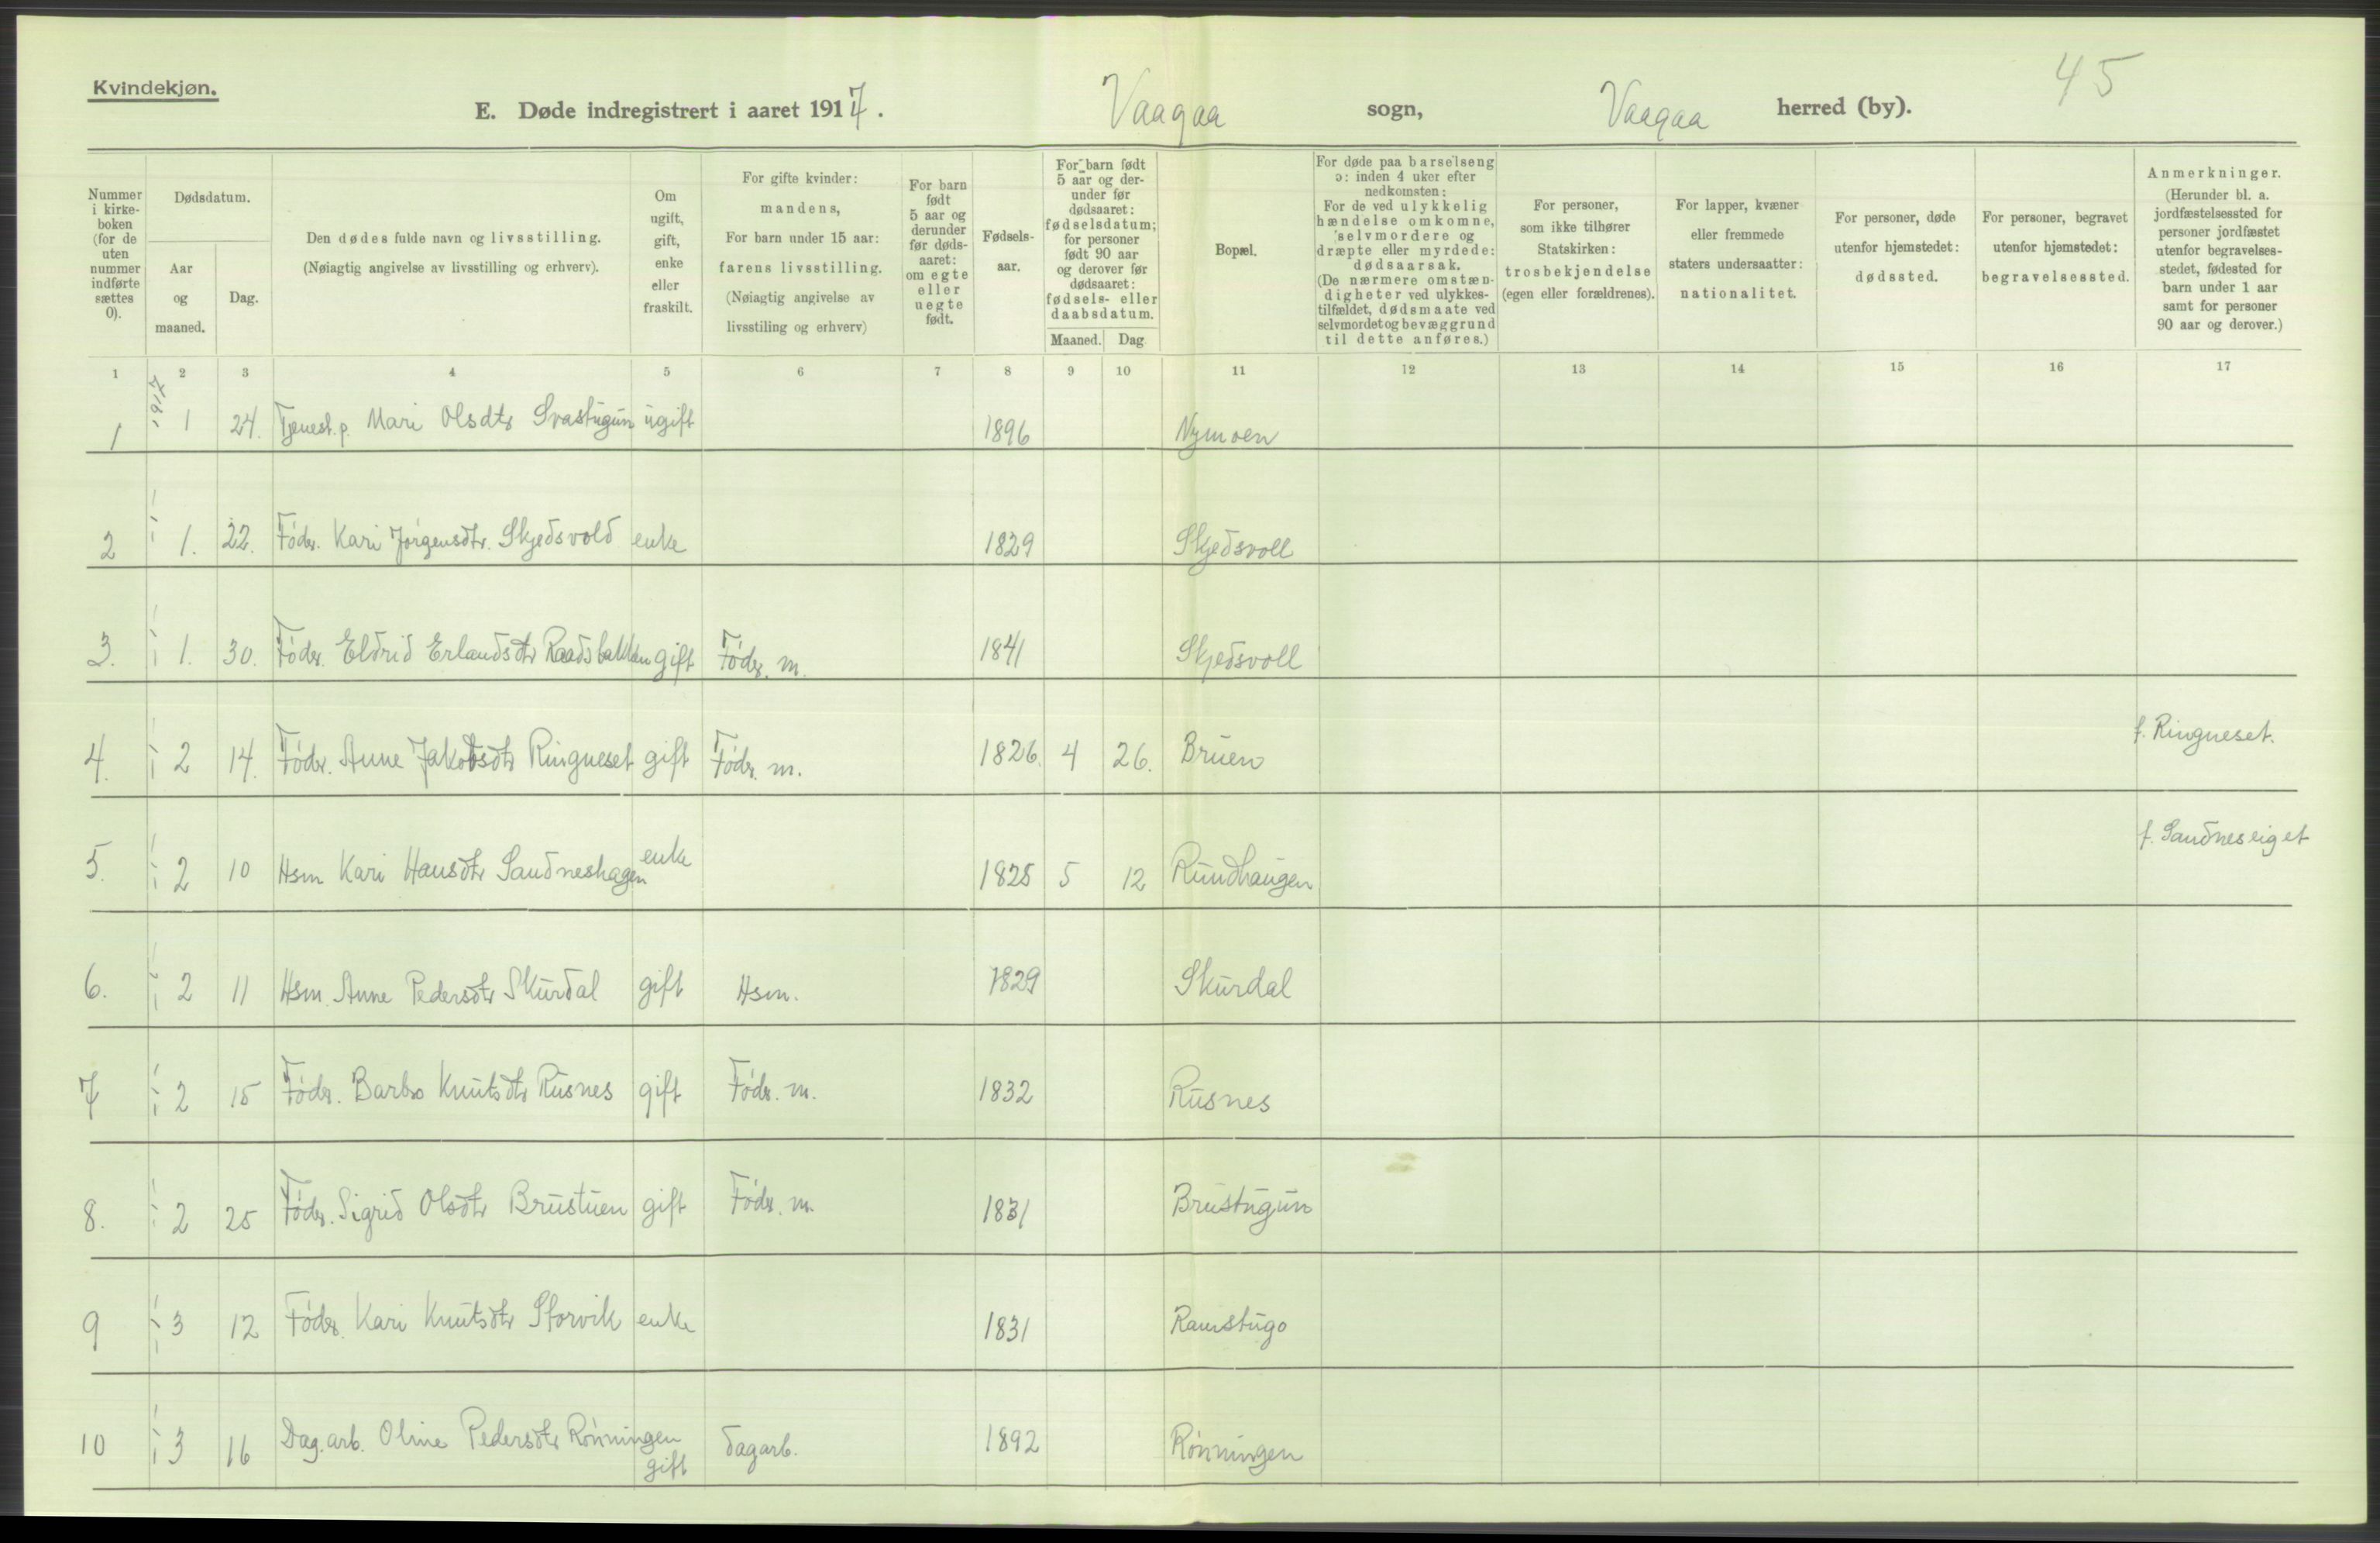 Kvindekjøn.
45
E. Døde indregistrert i aaret 1917. Vaagaa sogn, Vaagaa herred (by).
Nummer i kirke-
boken
(for de
uten
nummer
indførte
sættes
0).
Dødsdatum.
Aar
og
maaned.
Dag.
Den dødes fulde navn og livsstilling.
(Nøiagtig angivelse av livsstilling og erhverv).
Om
ugift,
gift,
enke
eller
fraskilt.
For gifte kvinder:
mandens,
For barn under 15 aar:
farens livsstilling.
(Nøiagtig angivelse av
livsstiling og erhverv)
For barn
født
5 aar og
derunder
før døds-
aaret:
om egte
eller
uegte
født.
Fødsels-
aar.
For barn født
5 aar og der-
under før
dødsaaret:
fødselsdatum;
for personer
født 90 aar
og derover før
dødsaaret:
fødsels- eller
daabsdatum.
Maaned. Dag
Bopæl.
For døde paa barselseng
ɔ: inden 4 uker efter
nedkomsten:
For de ved ulykkelig
hændelse omkomne,
selvmordere og
dræpte eller myrdede:
dødsaarsak.
(De nærmere omstæn-
digheter ved ulykkes-
tilfældet, dødsmaate ved
selvmordet og bevæggrund
til dette anføres.)
For personer,
som ikke tilhører
Statskirken:
trosbekjendelse
(egen eller forældrenes).
For lapper, kvæner
eller fremmede
staters undersaatter:
nationalitet.
For personer, døde
utenfor hjemstedet:
dødssted.
For personer, begravet
utenfor hjemstedet:
begravelsessted.
Anmerkninger.
(Herunder bl. a.
jordfæstelsessted for
personer jordfæstet
utenfor begravelses-
stedet, fødested for
barn under 1 aar
samt for personer
90 aar og derover.)
1 2 3 4 5 6 7 8 9 10 11 12 13 14 15 16 17
1 1917 1 24. Tjenest.p. Mari Olsdtr Svastugun ugift 1896 Nymoen
2 1. 22. Føder. Kari Jørgensdtr. Skjedsvold enke 1829 Skjedsvoll
3. 1. 30. Føder. Eldrid Erlandsdtr Raadsbakken gift Føder. m. 1841 Skjedsvoll
4. 2 14. Føder. Anne Jakobsdtr Ringneset gift Føder. m. 1826. 4 26. Bruen f. Ringneset.
5. 2 10 Hsm Kari Hansdtr Sandneshagen enke 1825 5 12 Rundhaugen f. Sandneseiget
6. 2 11 Hsm. Anne Pedersdtr Skurdal gift Hsm. 1829 Skurdal
7 2 15 Føder. Barbro Knutsdtr Rusnes gift Føder. m. 1832 Rusnes
8. 2 25 Føder. Sigrid Olsdtr Brustuen gift Føder. m. 1831 Brustugun
9 3 12 Føder. Kari Knutsdtr Storvik enke 1831 Ramstugo
10 3 16 Dag.arb. Oline Pedersdtr Rønningen gift dagarb. 1892 Rønningen